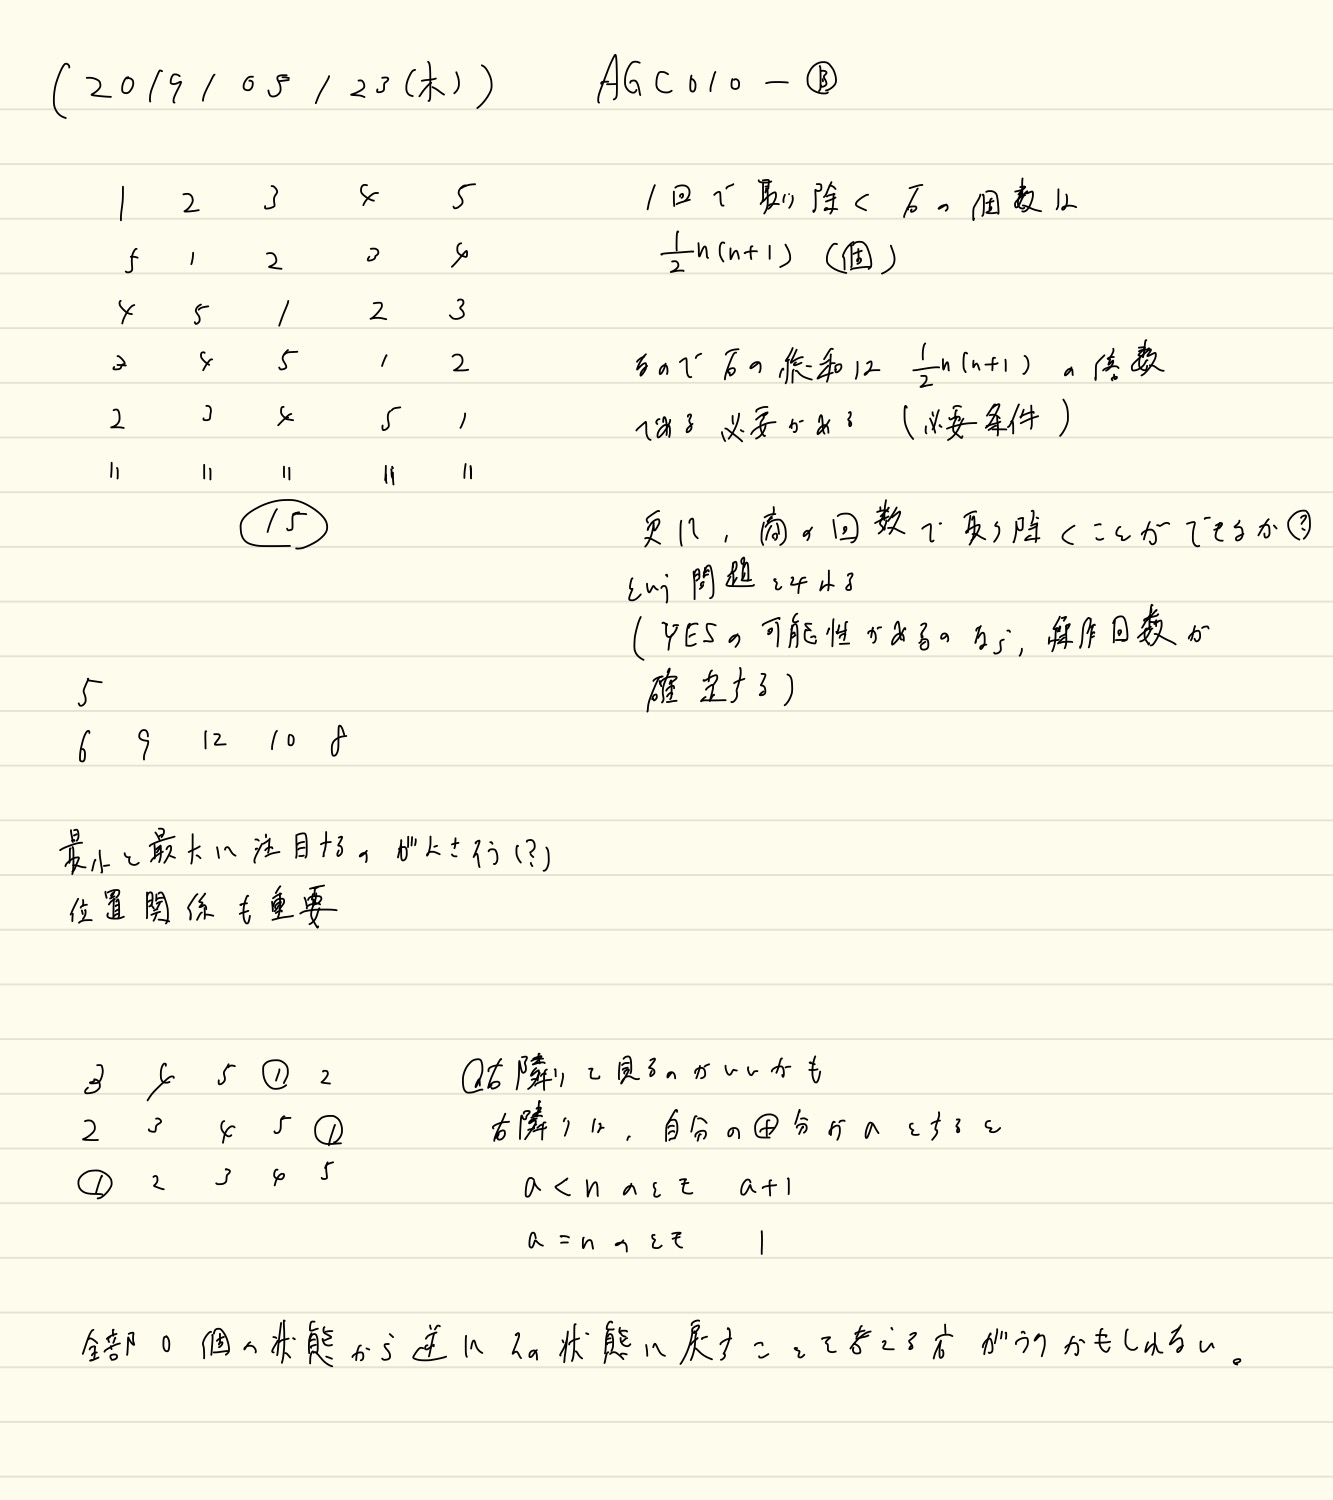 (2019/05/23(木)) AGC010-Ⓑ
1 2 3 4 5
5 1 2 3 4
4 5 1 2 3
3 4 5 1 2
2 3 4 5 1
= = = = =
15
1回で取り除く石の個数は
1/2 n(n+1) (個)
なので石の総和は 1/2 n(n+1) の倍数
である必要がある (必要条件)
更に、商の回数で取り除くことができるか?
という問題と
(YESの可能性があるのなら、操作回数が
確定する)
5
6 9 12 10 8
最小と最大に注目するのがよさそう(?)
位置関係も重要
3 4 5 ① 2
2 3 4 5 ①
① 2 3 4 5
右隣りを見るのがいいかも
右隣りは、自分の 分が a とすると
a<n のとき a+1
a=n のとき 1
全部0個の状態から逆に元の状態に戻すことを考える方が かもしれない。